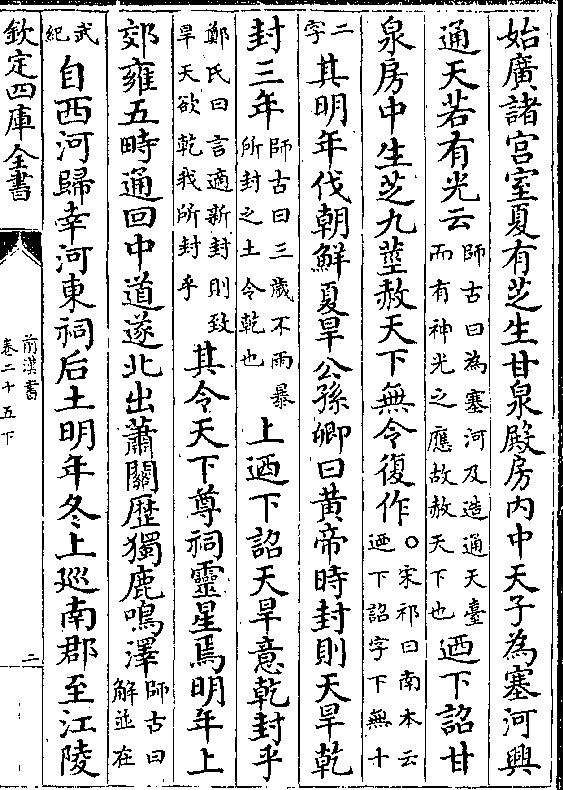 始廣諸宫室夏有芝生甘泉殿房内中天子為塞河興
通天若有光云師古曰為塞河及造通天臺而有神光之應故赦天下也迺下詔甘
泉房中生芝九莖赦天下無令復作○宋祁曰南本云迺下詔字下無十
二字其明年伐朝鮮夏旱公孫卿曰黄帝時封則天旱乾
封三年師古曰三歲不雨暴所封之土令乾也上迺下詔天旱意乾封乎
鄭氏曰言適新封則致旱天欲乾我所封乎其令天下尊祠靈星焉明年上
郊雍五畤通回中道遂北出蕭關歷獨鹿鳴澤師古曰解並在
武紀自西河歸幸河東祠后土明年冬上巡南郡至江陵
欽定四庫全書
前漢書
卷二十五下
二